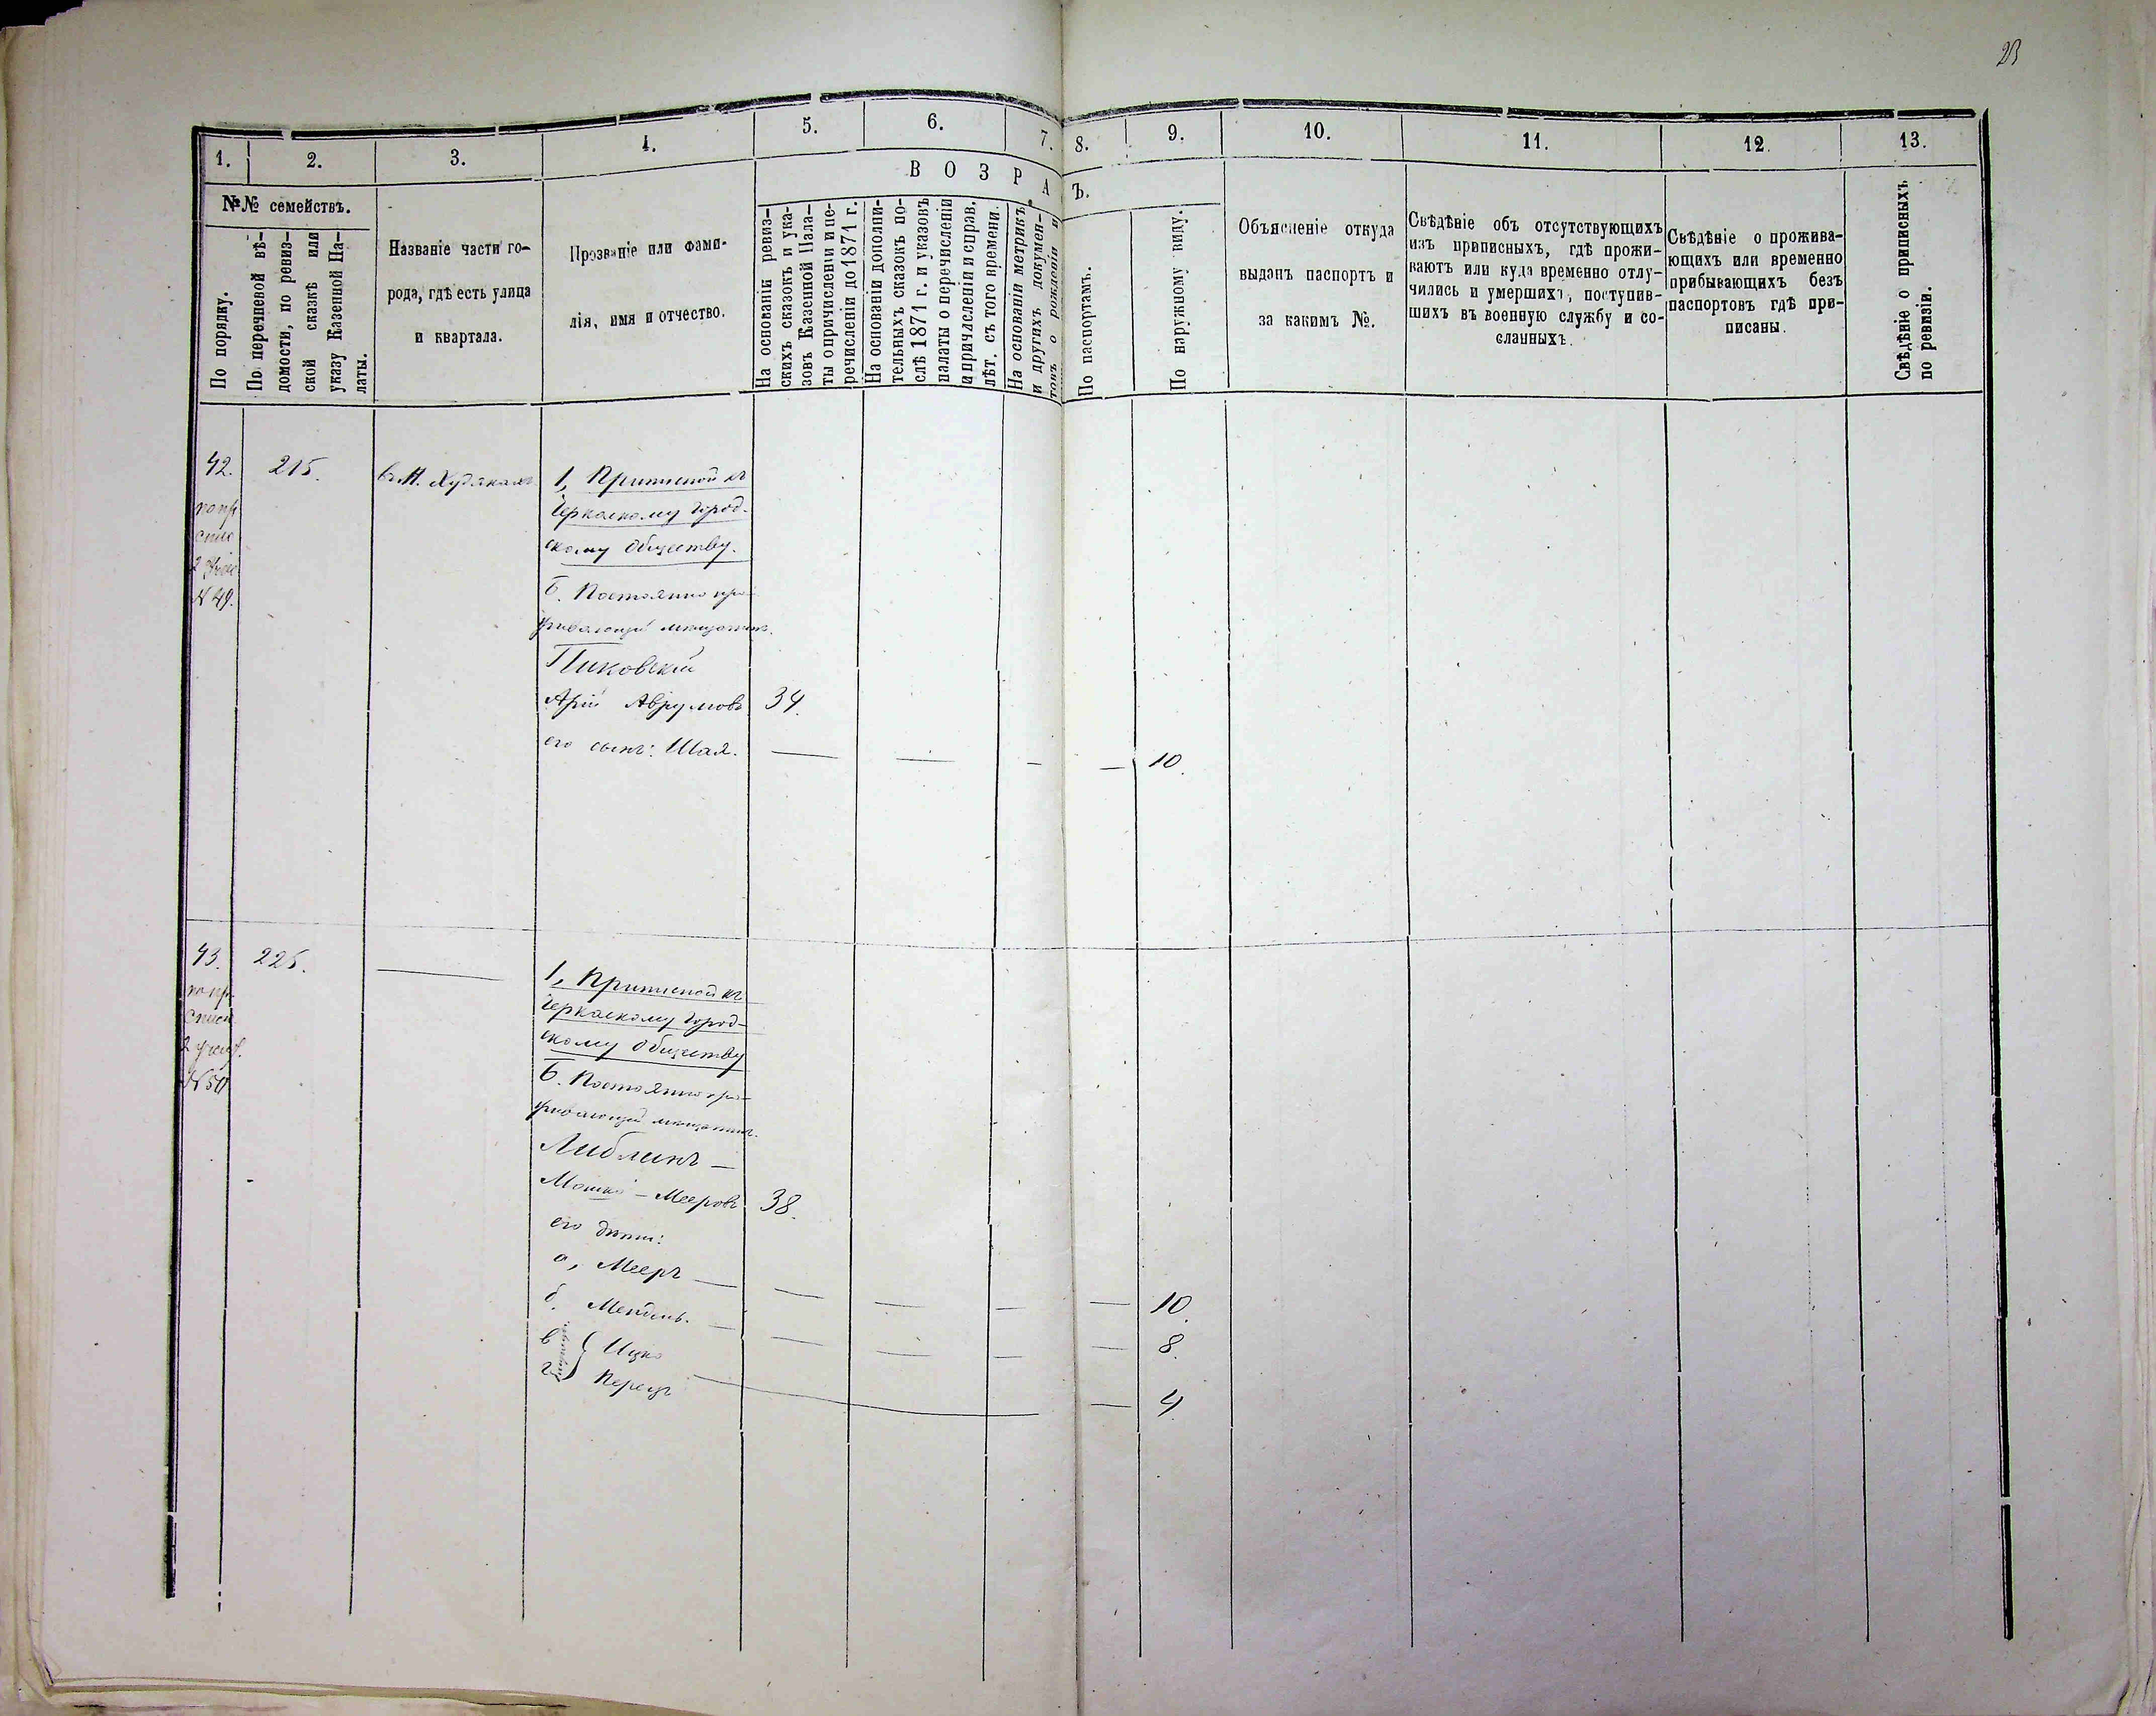 23
1.
2.
3.
4.
5.
6.
7.
8.
9.
10.
11.
12.
13.
№№ семействъ.
По порядку.
По перечневой вѣ-
домости, по ревиз-
ской сказкѣ или
указу Казенной Па-
латы.
Названіе части го-
рода, гдѣ есть улица
и квартала.
Прозваніе или фами-
лія, имя и отчество.
В О З Р А
Ъ.
На основаніи ревиз-
скихъ сказокъ и ука-
зовъ Казенной Пала-
ты о причисленіи и пе-
речисленіи до 1871 г.
На основаніи дополни-
тельныхъ сказокъ по-
слѣ 1871 г. и указовъ
палаты о перечисленіи
и причисленіи и справ.
лѣт. съ того времени.
На основаніи метрикъ
и другихъ докумен-
товъ о рожденіи и
По паспортамъ.
По наружному виду.
Объясненіе откуда
выданъ паспортъ и
за какимъ №.
Свѣдѣніе объ отсутствующихъ
изъ приписныхъ, гдѣ прожи-
ваютъ или куда временно отлу-
чились и умершихъ, поступив-
шихъ въ военную службу и со-
сланныхъ.
Свѣдѣніе о прожива-
ющихъ или временно
прибывающихъ безъ
паспортовъ гдѣ при-
писаны.
Свѣдѣніе о приписныхъ
по ревизіи.
42.
215.
въ М. Худякахъ
1, Приписной къ
Черкаскому город-
скому обществу.
по пр
спис
2
№ 49.
Б. Постоянно про-
живающій мещанинъ.
Пиковскій
Арій Аврумовъ 34.
его сынъ: Шая. — — — — 10.
43.
225.
—
1, Приписной къ
Черкаскому город-
скому обществу
по пр
списк
2 участ.
№ 50
Б. Постоянно про-
живающій мещанинъ.
Либлинъ —
Мошко — Мееровъ 38.
его дѣти:
а, Мееръ — — — — — 10.
б. Мендель. — — — — — 8.
в Ицко
г Перецъ — — 4